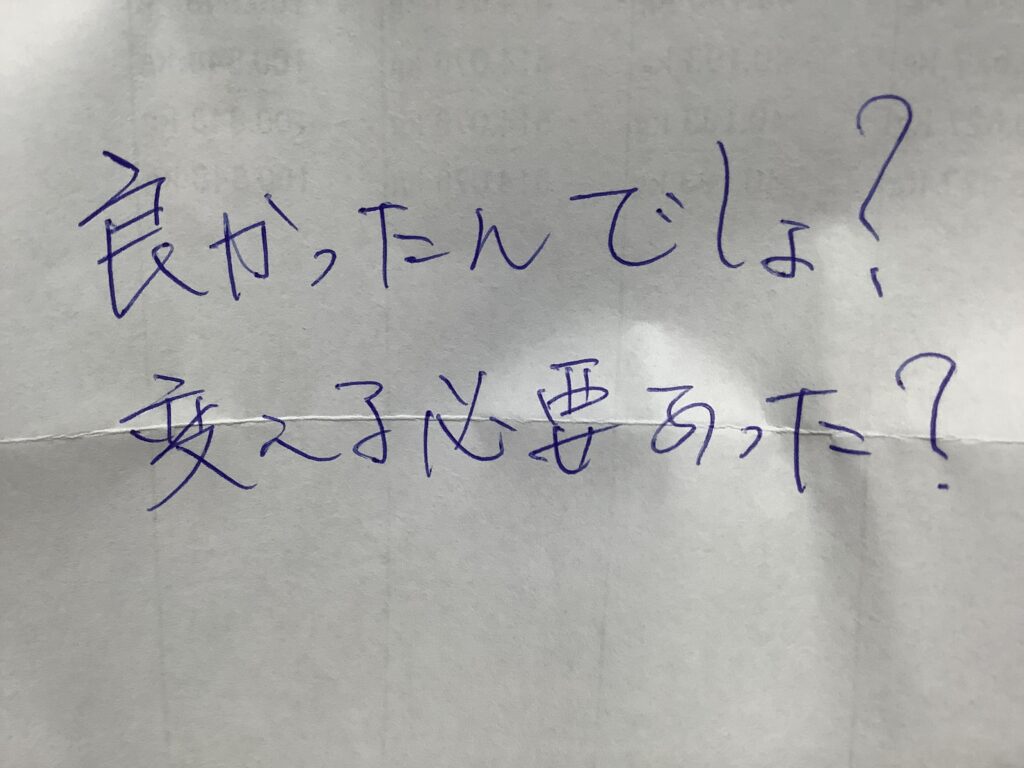 良かったんでしょ?
変える必要あった?